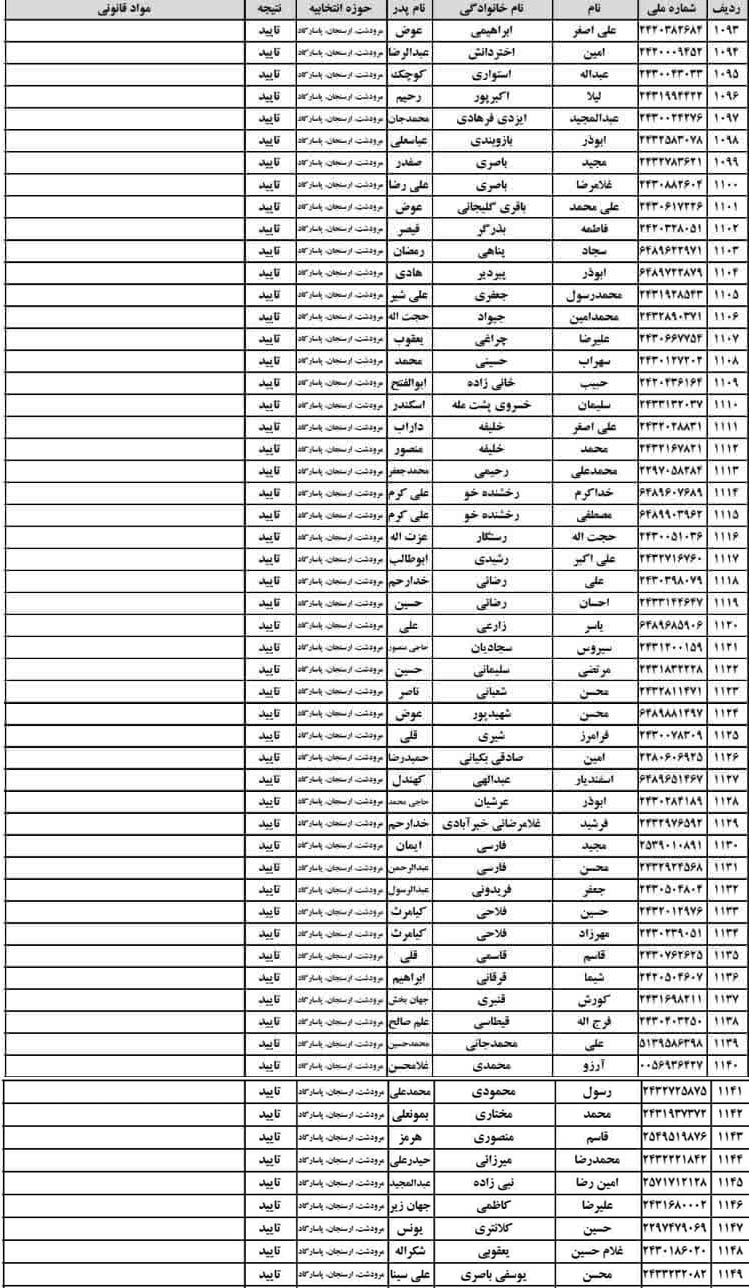 ردیف شماره ملی نام نام خانوادگی نام پدر حوزه انتخابیه نتیجه مواد قانونی
۱۰۹۳ ۲۴۲۰۳۸۲۶۸۴ علی اصغر ابراهیمی عوض مرودشت، ارسنجان، پاسارگاد تایید
۱۰۹۴ ۲۴۲۰۰۰۹۴۵۲ امین اختردانش عبدالرضا مرودشت، ارسنجان، پاسارگاد تایید
۱۰۹۵ ۲۴۳۰۰۴۳۰۳۳ عبداله استواری کوچک مرودشت، ارسنجان، پاسارگاد تایید
۱۰۹۶ ۲۴۳۱۹۹۴۴۲۲ لیلا اکبرپور رحیم مرودشت، ارسنجان، پاسارگاد تایید
۱۰۹۷ ۲۴۳۰۰۲۴۲۷۶ عبدالمجید ایزدی فرهادی محمدجان مرودشت، ارسنجان، پاسارگاد تایید
۱۰۹۸ ۲۴۳۲۵۸۳۰۷۸ ابوذر بازوبندی عباسعلی مرودشت، ارسنجان، پاسارگاد تایید
۱۰۹۹ ۲۴۳۲۷۸۳۶۲۱ مجید باصری صفدر مرودشت، ارسنجان، پاسارگاد تایید
۱۱۰۰ ۲۴۳۰۸۸۲۶۰۴ غلامرضا باصری علی رضا مرودشت، ارسنجان، پاسارگاد تایید
۱۱۰۱ ۲۴۳۰۶۱۷۲۲۶ علی محمد باقری گلیجانی عوض مرودشت، ارسنجان، پاسارگاد تایید
۱۱۰۲ ۲۴۲۰۳۲۸۰۵۱ فاطمه بذرگر قیصر مرودشت، ارسنجان، پاسارگاد تایید
۱۱۰۳ ۶۴۸۹۶۲۲۹۷۱ سجاد پناهی رمضان مرودشت، ارسنجان، پاسارگاد تایید
۱۱۰۴ ۶۴۸۹۷۲۲۸۷۹ ابوذر پیردیر هادی مرودشت، ارسنجان، پاسارگاد تایید
۱۱۰۵ ۲۴۳۱۹۲۸۵۴۳ محمدرسول جعفری علی شیر مرودشت، ارسنجان، پاسارگاد تایید
۱۱۰۶ ۲۴۳۲۸۹۰۳۷۱ محمدامین جیواد حجت اله مرودشت، ارسنجان، پاسارگاد تایید
۱۱۰۷ ۲۴۳۰۶۶۷۷۵۴ علیرضا چراغی یعقوب مرودشت، ارسنجان، پاسارگاد تایید
۱۱۰۸ ۲۴۳۰۱۲۷۲۰۲ سهراب حسینی محمد مرودشت، ارسنجان، پاسارگاد تایید
۱۱۰۹ ۲۴۲۰۴۳۶۱۶۴ حبیب خانی زاده ابوالفتح مرودشت، ارسنجان، پاسارگاد تایید
۱۱۱۰ ۲۴۳۳۱۳۲۰۳۷ سلیمان خسروی پشت مله اسکندر مرودشت، ارسنجان، پاسارگاد تایید
۱۱۱۱ ۲۴۳۲۰۲۸۸۳۱ علی اصغر خلیفه داراب مرودشت، ارسنجان، پاسارگاد تایید
۱۱۱۲ ۲۴۳۲۱۶۷۸۲۱ محمد خلیفه منصور مرودشت، ارسنجان، پاسارگاد تایید
۱۱۱۳ ۲۲۹۷۰۵۸۲۸۴ محمدعلی رحیمی محمدجعفر مرودشت، ارسنجان، پاسارگاد تایید
۱۱۱۴ ۶۴۸۹۶۰۷۶۸۹ خداکرم رخشنده خو علی کرم مرودشت، ارسنجان، پاسارگاد تایید
۱۱۱۵ ۶۴۸۹۹۰۳۹۶۲ مصطفی رخشنده خو علی کرم مرودشت، ارسنجان، پاسارگاد تایید
۱۱۱۶ ۲۴۳۰۰۵۱۰۳۶ حجت اله رستگار عزت اله مرودشت، ارسنجان، پاسارگاد تایید
۱۱۱۷ ۲۴۳۲۷۱۶۷۶۰ علی اکبر رشیدی ابوطالب مرودشت، ارسنجان، پاسارگاد تایید
۱۱۱۸ ۲۴۳۰۳۹۸۰۷۹ علی رضائی خدارحم مرودشت، ارسنجان، پاسارگاد تایید
۱۱۱۹ ۲۴۳۳۱۴۴۶۴۷ احسان رضائی حسین مرودشت، ارسنجان، پاسارگاد تایید
۱۱۲۰ ۶۴۸۹۶۸۵۹۰۶ یاسر زارعی علی مرودشت، ارسنجان، پاسارگاد تایید
۱۱۲۱ ۲۴۳۱۲۰۰۱۵۹ سیروس سجادیان حاجی منصور مرودشت، ارسنجان، پاسارگاد تایید
۱۱۲۲ ۲۴۳۱۸۳۲۲۲۸ مرتضی سلیمانی حسین مرودشت، ارسنجان، پاسارگاد تایید
۱۱۲۳ ۲۴۳۲۸۱۱۴۷۱ محسن شعبانی ناصر مرودشت، ارسنجان، پاسارگاد تایید
۱۱۲۴ ۶۴۸۹۸۸۱۴۹۷ محسن شهیدپور عوض مرودشت، ارسنجان، پاسارگاد تایید
۱۱۲۵ ۲۴۳۰۰۷۸۳۰۹ فرامرز شیری قلی مرودشت، ارسنجان، پاسارگاد تایید
۱۱۲۶ ۲۲۸۰۶۰۶۹۲۵ امین صادقی بکیانی حمیدرضا مرودشت، ارسنجان، پاسارگاد تایید
۱۱۲۷ ۶۴۸۹۶۵۱۴۶۷ اسفندیار عبدالهی کهندل مرودشت، ارسنجان، پاسارگاد تایید
۱۱۲۸ ۲۴۳۰۲۸۴۱۸۹ ابوذر عرشیان حاجی محمد مرودشت، ارسنجان، پاسارگاد تایید
۱۱۲۹ ۲۴۳۲۹۷۶۵۹۲ فرشید غلامرضائی خیرآبادی خدارحم مرودشت، ارسنجان، پاسارگاد تایید
۱۱۳۰ ۲۵۳۹۰۱۰۸۹۱ مجید فارسی ایمان مرودشت، ارسنجان، پاسارگاد تایید
۱۱۳۱ ۲۴۳۲۹۲۴۵۶۸ محسن فارسی عبدالرحمن مرودشت، ارسنجان، پاسارگاد تایید
۱۱۳۲ ۲۴۳۰۵۰۴۸۰۴ جعفر فریدونی عبدالرسول مرودشت، ارسنجان، پاسارگاد تایید
۱۱۳۳ ۲۴۳۲۰۱۲۹۷۶ حسین فلاحی کیامرث مرودشت، ارسنجان، پاسارگاد تایید
۱۱۳۴ ۲۴۳۰۲۳۹۰۵۱ مهرزاد فلاحی کیامرث مرودشت، ارسنجان، پاسارگاد تایید
۱۱۳۵ ۲۴۳۰۷۶۲۶۲۵ قاسم قاسمی قلی مرودشت، ارسنجان، پاسارگاد تایید
۱۱۳۶ ۲۴۲۰۵۰۴۶۰۷ شیما قرقانی ابراهیم مرودشت، ارسنجان، پاسارگاد تایید
۱۱۳۷ ۲۴۳۱۶۹۸۲۱۱ کورش قنبری جهان بخش مرودشت، ارسنجان، پاسارگاد تایید
۱۱۳۸ ۲۴۳۰۴۰۳۲۵۰ فرج اله قیطاسی علم صالح مرودشت، ارسنجان، پاسارگاد تایید
۱۱۳۹ ۵۱۳۹۵۸۶۳۹۸ علی محمدجانی محمدحسین مرودشت، ارسنجان، پاسارگاد تایید
۱۱۴۰ ۰۰۵۶۹۳۶۴۲۷ آرزو محمدی غلامحسن مرودشت، ارسنجان، پاسارگاد تایید
۱۱۴۱ ۲۴۳۲۷۲۵۸۷۵ رسول محمودی محمدعلی مرودشت، ارسنجان، پاسارگاد تایید
۱۱۴۲ ۲۴۳۱۹۳۷۳۷۲ محمد مختاری بمونعلی مرودشت، ارسنجان، پاسارگاد تایید
۱۱۴۳ ۲۵۴۹۵۱۹۸۷۶ قاسم منصوری هرمز مرودشت، ارسنجان، پاسارگاد تایید
۱۱۴۴ ۲۴۳۲۲۲۱۸۴۲ محمدرضا میرزائی حیدرعلی مرودشت، ارسنجان، پاسارگاد تایید
۱۱۴۵ ۲۵۷۱۷۱۲۱۲۸ امین رضا نبی زاده عبدالمجید مرودشت، ارسنجان، پاسارگاد تایید
۱۱۴۶ ۲۴۳۱۶۸۰۰۰۲ علیرضا کاظمی جهان زیر مرودشت، ارسنجان، پاسارگاد تایید
۱۱۴۷ ۲۲۹۷۴۷۹۰۶۹ حسین کلانتری یونس مرودشت، ارسنجان، پاسارگاد تایید
۱۱۴۸ ۲۴۳۰۱۸۶۰۲۰ غلام حسین یعقوبی شکراله مرودشت، ارسنجان، پاسارگاد تایید
۱۱۴۹ ۲۴۳۳۲۳۲۰۸۲ محسن یوسفی باصری علی سینا مرودشت، ارسنجان، پاسارگاد تایید